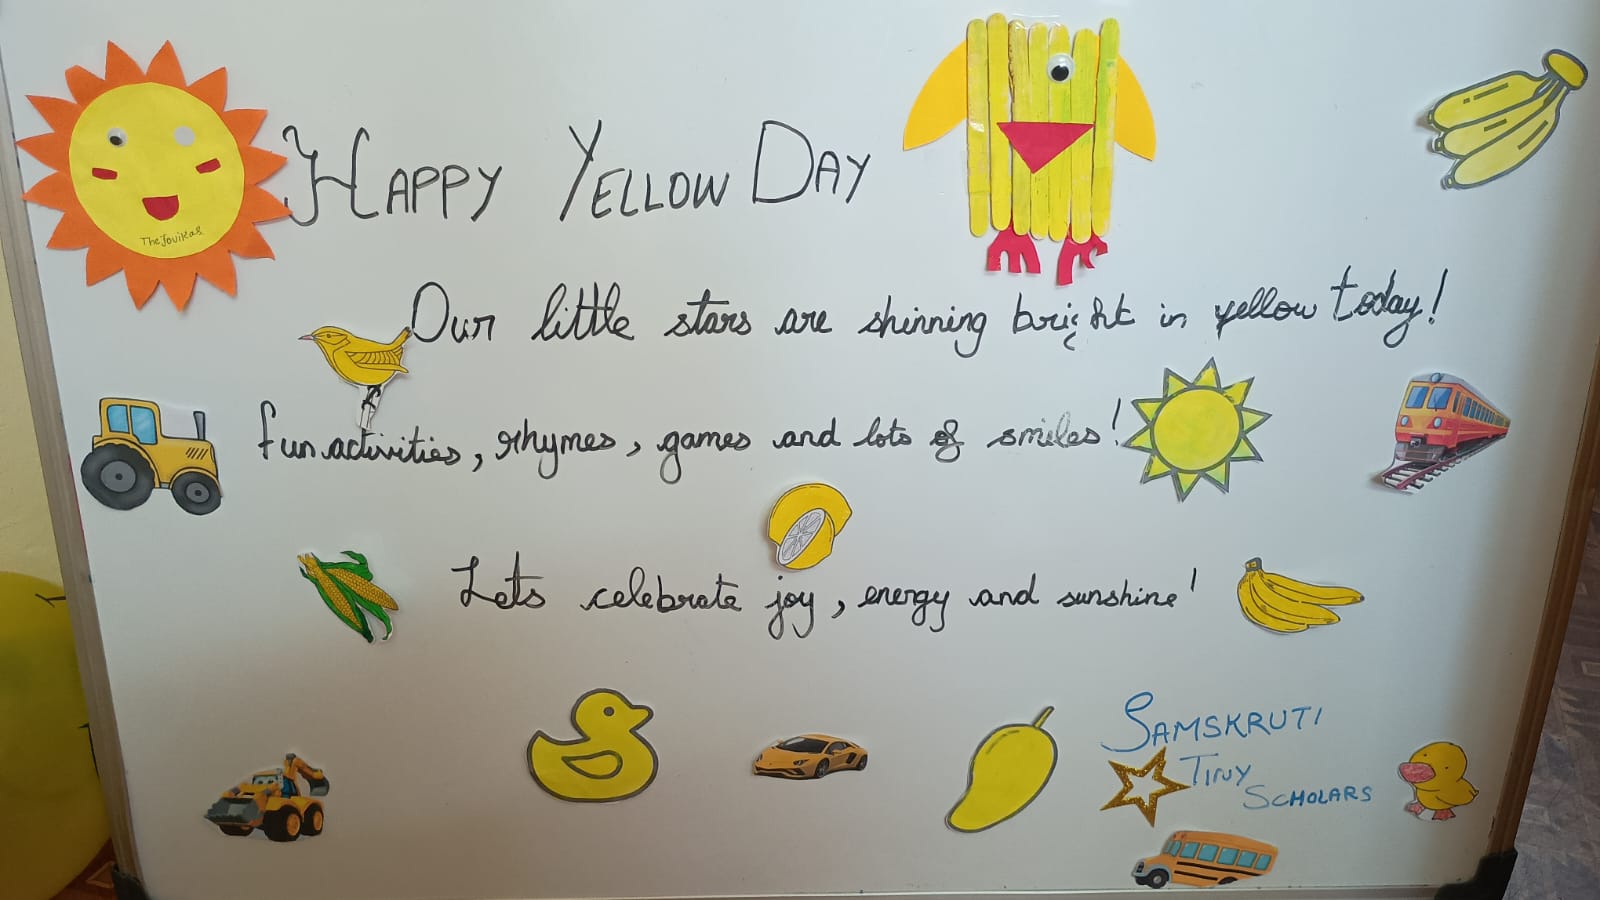 Happy Yellow Day
Thejovikas
Our little stars are shinning bright in yellow today!
fun activities, rhymes, games and lots of smiles!
Lets celebrate joy, energy and sunshine!
Samskruti
Tiny
Scholars